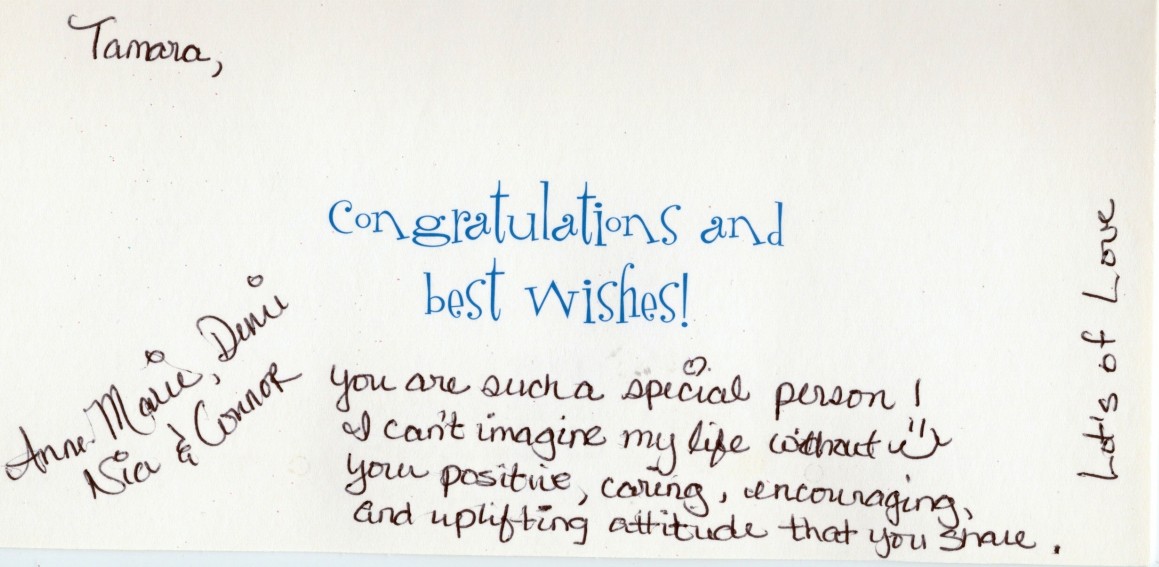 Tamara,
Congratulations and
best wishes!
You are such a special person!
I can't imagine my life without
your positive, caring, encouraging,
and uplifting attitude that you share.
Lot's of Love
Anne-Marie, Denis
Nia & Connor